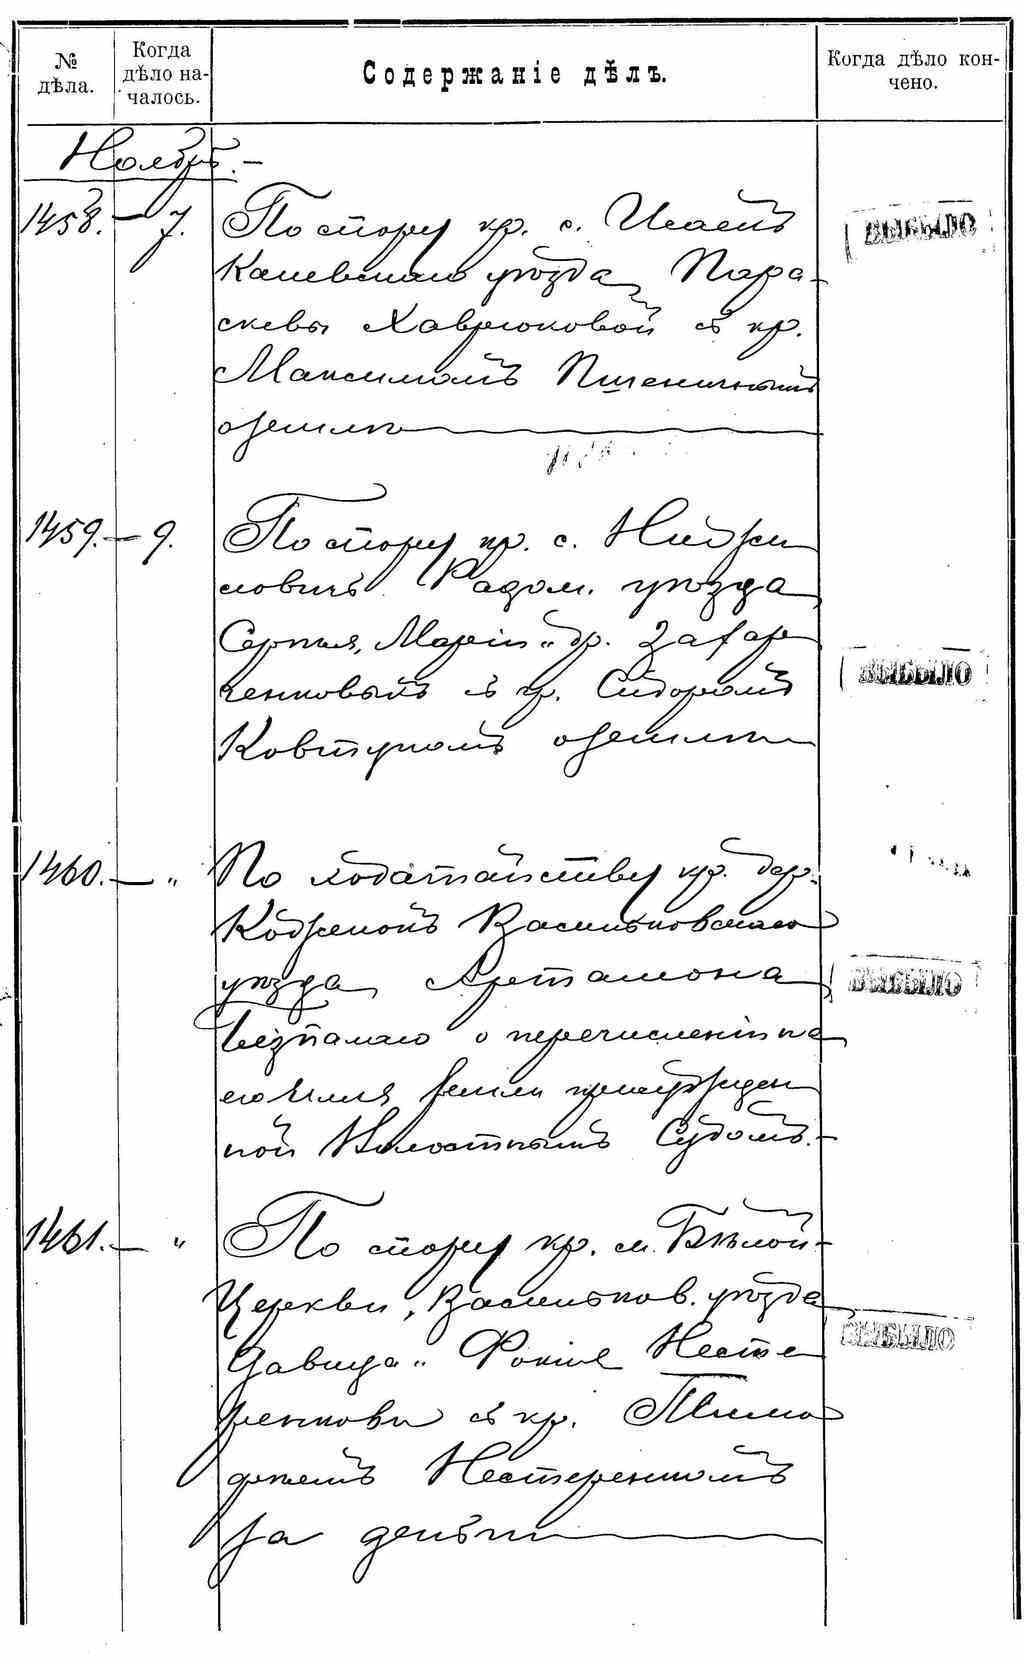 № дѣла.
Когда дѣло на-чалось.
Содержаніе дѣлъ.
Когда дѣло кон-чено.
Ноябрь.-
1458.- 7. По спору кр. с.
Каневскаго уѣзда, Пара-
скевы Хаврюковой съ кр.
Максимомъ Пшеничнымъ
о землѣ
1459.- 9. По спору кр. с. Нижи
ловичъ Радом. уѣзда
Сергѣя, Маріи и др. Захар
ченковыхъ съ кр. Сидоромъ
Ковтуномъ о землѣ
1460.- " По ходатайству кр. дер.
Васильковскаго
уѣзда, Артамона
Безпалаго о перечисленіи на
его имя земли присужден
ной Волостнымъ Судомъ.-
1461.- " По спору кр. м. Бѣлой-
Церкви, Васильков. уѣзда
Давида и Фокіе Несте
ренковы съ кр. Тимо
фѣемъ Нестеренкомъ
за деньги